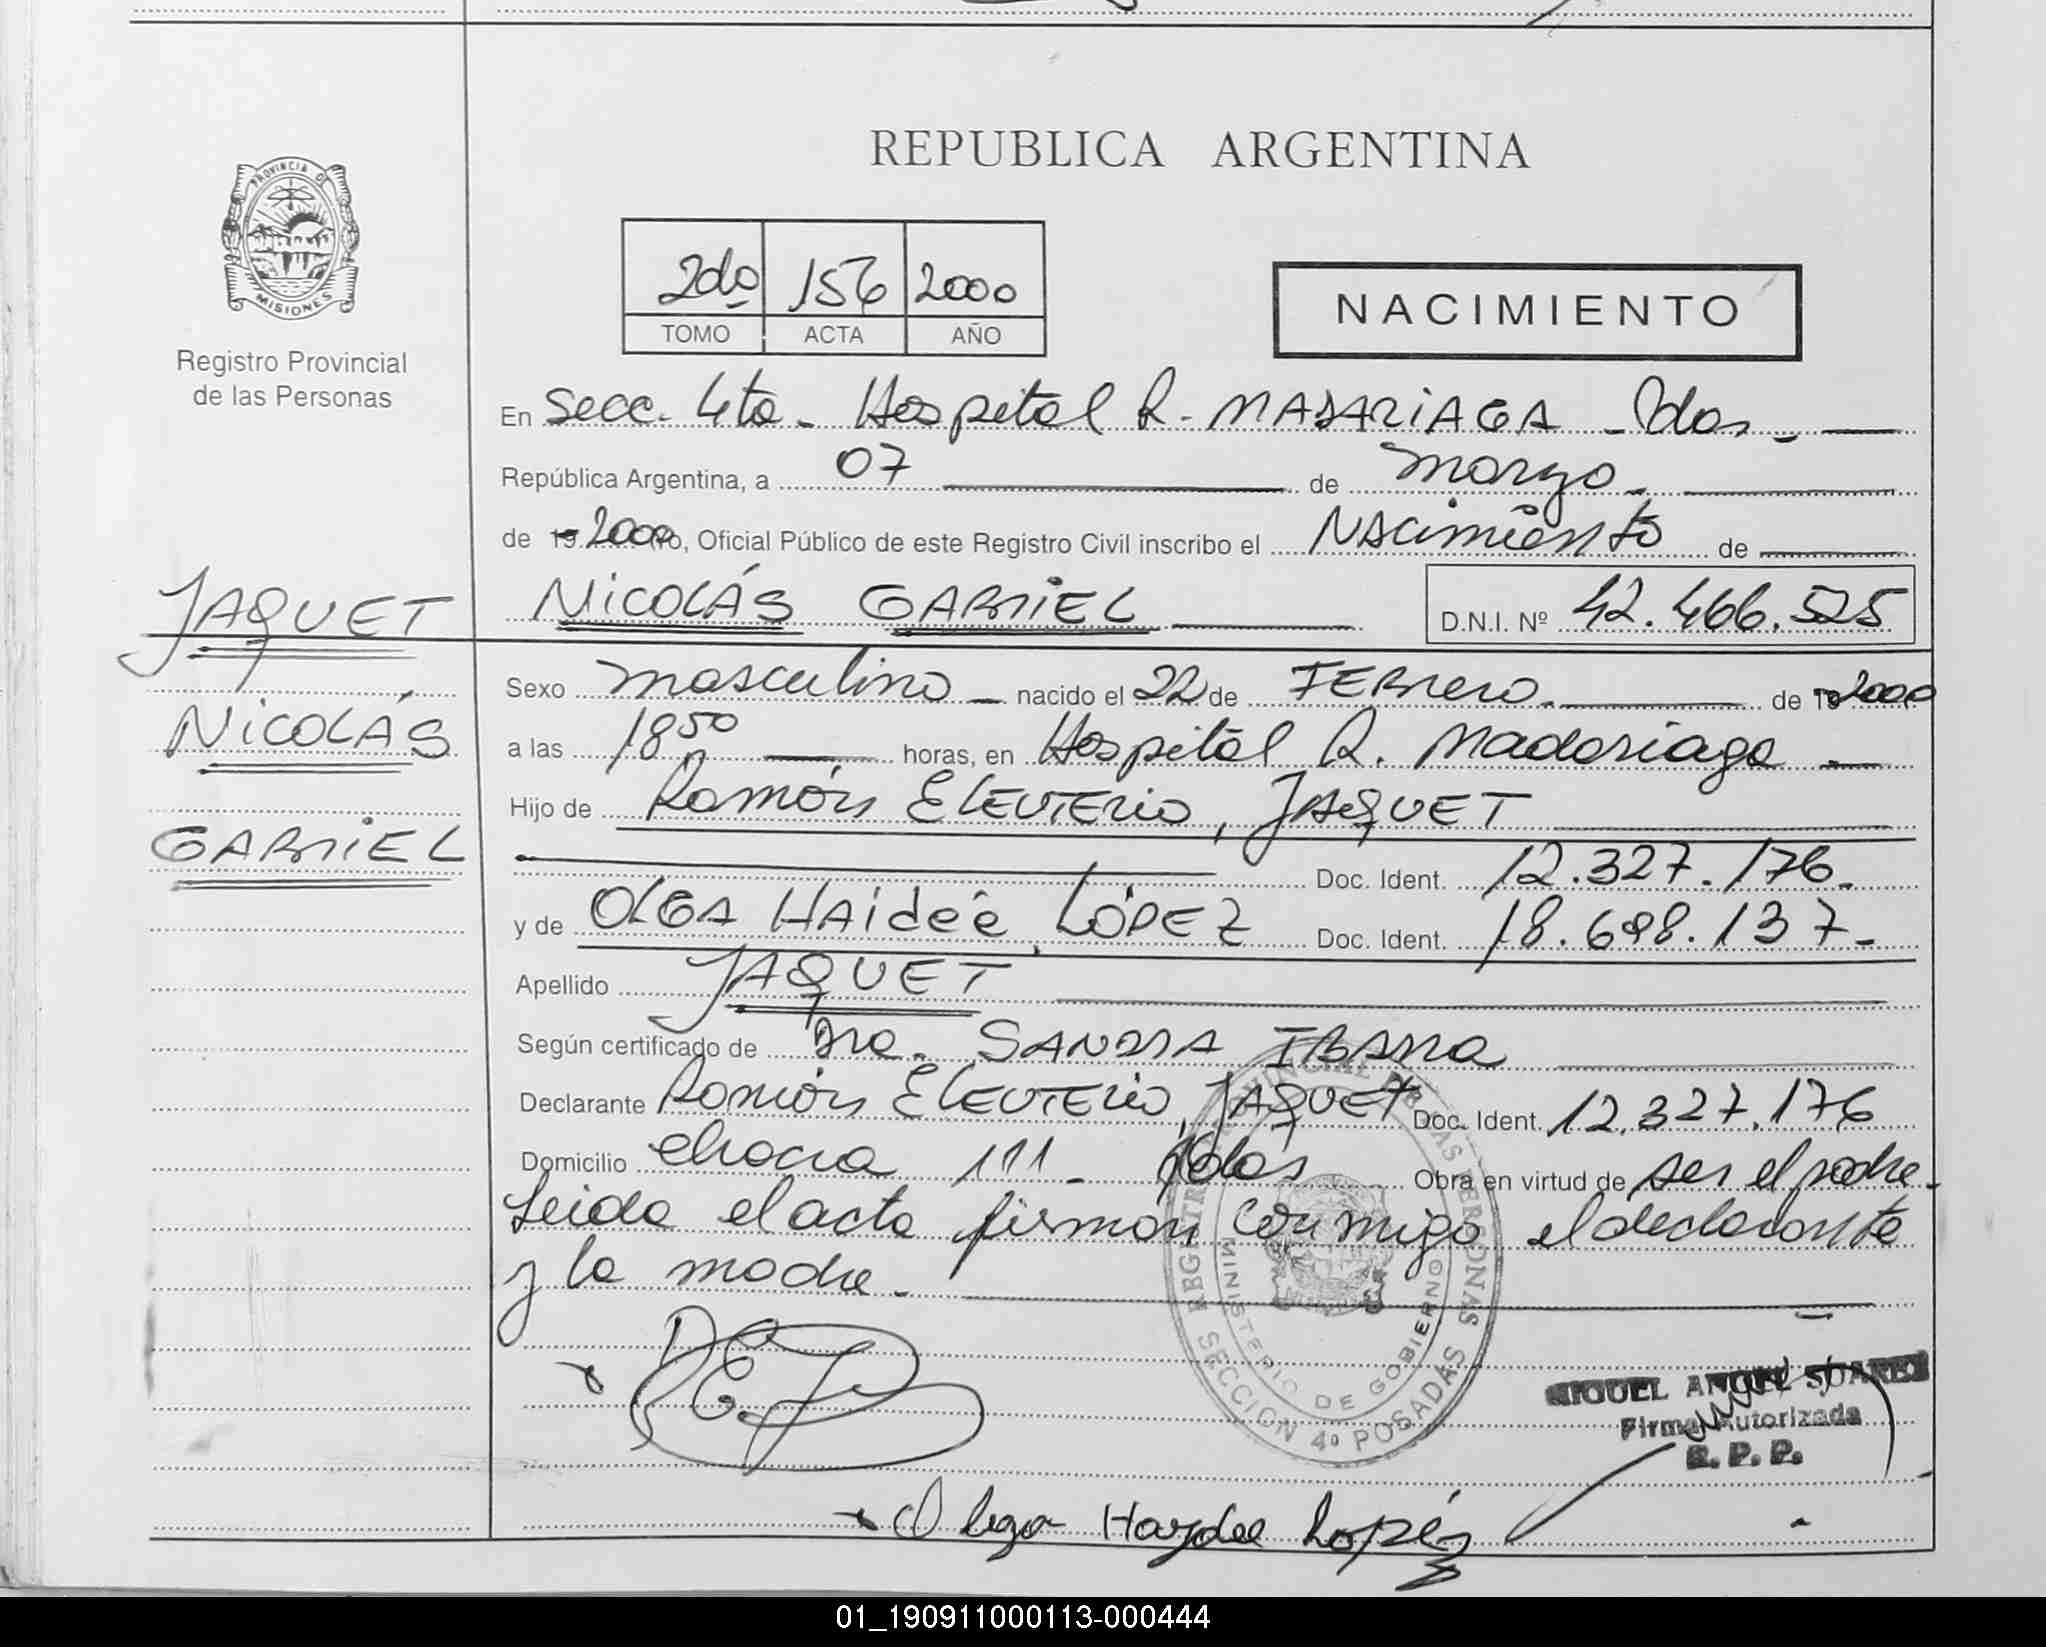 REPUBLICA ARGENTINA
PROVINCIA DE MISIONES
Registro Provincial
de las Personas
2do 156 2000
TOMO ACTA AÑO
NACIMIENTO
En Secc. 4ta - Hospital R. MADARIAGA - Pdas -
República Argentina, a 07 de Marzo -
de 2000 yo, Oficial Público de este Registro Civil inscribo el NACimiento de
NICOLÁS GABRIEL D.N.I. Nº 42.466.525
JAQUET
NICOLÁS
GABRIEL
Sexo masculino - nacido el 22 de FEBrero - de 19 2000
a las 18 50 horas, en Hospital R. Madariaga -
Hijo de Ramón ELEUTERio, JAQUET
Doc. Ident. 12.327.176.
y de OLGA HAideé, LÓPEZ Doc. Ident. 18.698.137-
Apellido JAQUET
Según certificado de Dra. SANDRA IBARRA
Declarante Ramón ELEUTERio, JAQUET Doc. Ident. 12.327.176
Domicilio 111 - Pdas Obra en virtud de ser el padre -
Leida el acta firman conmigo el declarante
y la madre -
REGISTRO PROVINCIAL DE LAS PERSONAS
MINISTERIO DE GOBIERNO
SECCION 4º POSADAS
REJ
MIGUEL ANGEL SUAREZ
Firma Autorizada
R. P. P.
Olga Haydee Lopéz
01_190911000113-000444